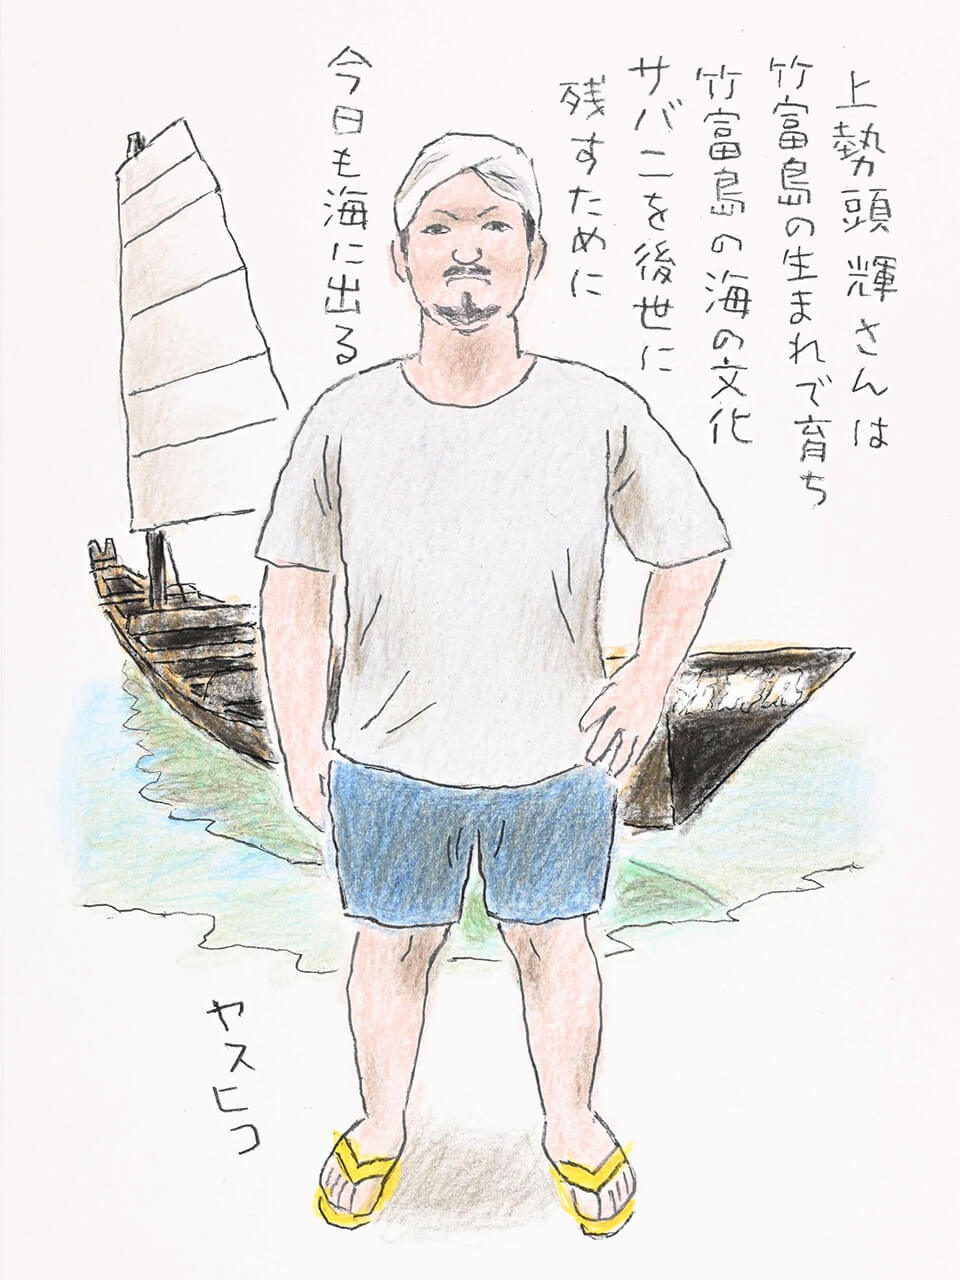 上勢頭輝さんは
竹富島の生まれで育ち
竹富島の海の文化
サバニを後世に
残すために
今日も海に出る
ヤスヒコ